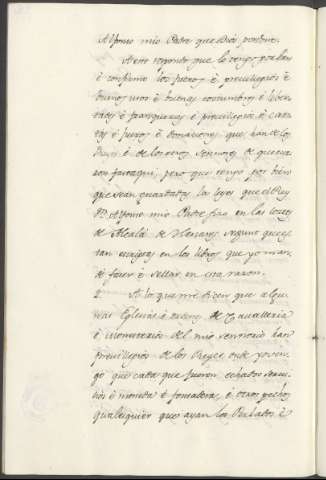 Alfonso mio Padre que Dios perdone.
A esto respondo que lo tengo por bien
é confirmo los fueros é previllegios é
buenos usos é buenas costumbres é liber-
tades é franquezas é previllegios é car-
tas é fueros é donaciones que han de los
Reyes é de los otros Sennores de que usa-
ron fasta aqui, pero que tengo por bien
que sean guardadas las leyes que el Rey
D.n Alfonso mio Padre fizo en las cortes
de Alcalá de Henares, segunt que es-
tan escriptas en los libros que yo man-
dé facer é sellar en esta razon.
2 A lo que me dicen que algu-
nas Eglesias é ordenes de Cavalleria
é Monesterios del mio sennorio han
previllegios de los Reyes onde yo ven-
go que cada que fueren echados servi-
cios é moneda é fonsadera, é otros pechos
qualesquier que ayan los Perlados é